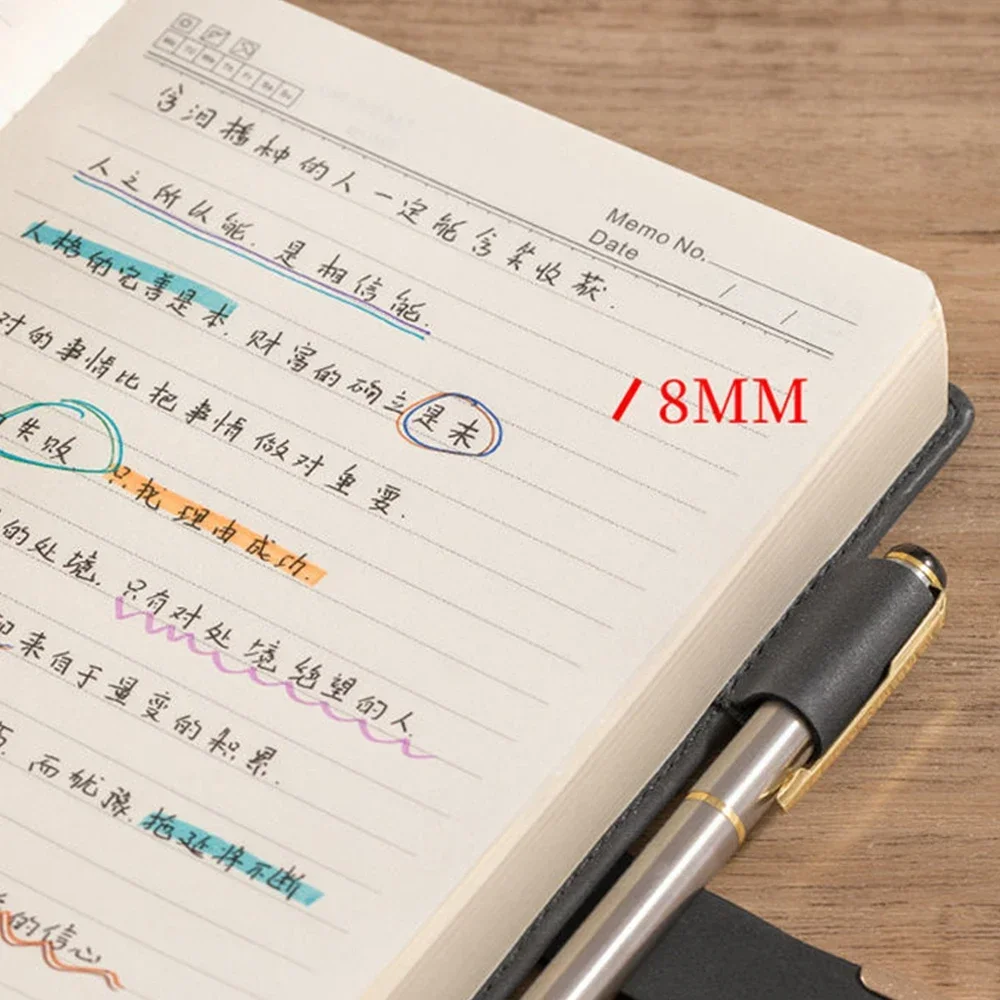 Memo No.
Date / /
含泪播种的人一定能含笑收获.
人之所以能.是相信能.
人格的完善是本.财富的确立是末
对的事情比把事情做对重要.
失败 只找理由成功.
的处境.只有对处境绝望的人.
来自于量变的积累.
而犹豫.拖延将不断
的信心
/ 8MM